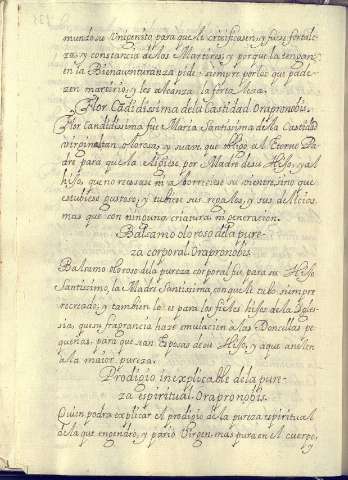 mundo su Unigenito para que le crucificasen, y fuese fortale
za, y constancia de los Martires, y porque la tengan
en la Bienaventuranza pide siempre por los que pade
zen martirio, y les alcanza la fortaleza.
Flor Cãdidissima dela Castidad. Ora pro nobis.
Flor Candidissima fue Maria Santissima dela Castidad
virginal tan olorosa, y suave, que obligò al Eterno Pa
dre para que la eligiese por Madre de su Hijo, y al
hijo, que no recusase ni aborreciese su vientre, sino que
estubiese gustoso, y tubiese sus regalos, y sus delicias
mas que con ninguna criatura ni generacion.
Balsamo oloroso dela pure-
za corporal. Ora pro nobis
Balsamo oloroso dela pureza corporal fue para su Hijo
Santissimo, la Madre Santissima con que le tubo siempre
recreado, y tambien lo es para los fieles hijos dela Igle
sia, que su fragrancia haze emulacion a las Doncellas pe
queñas, para que sean Esposas de su Hijo, y a que anelen
a la maior pureza.
Prodigio inexplicable dela pure-
za espiritual. Ora pro nobis.
Quien podra explicar el prodigio dela pureza espiritual
dela que engendrò, y pariò Virgen, mas pura en el cuerpo,
y